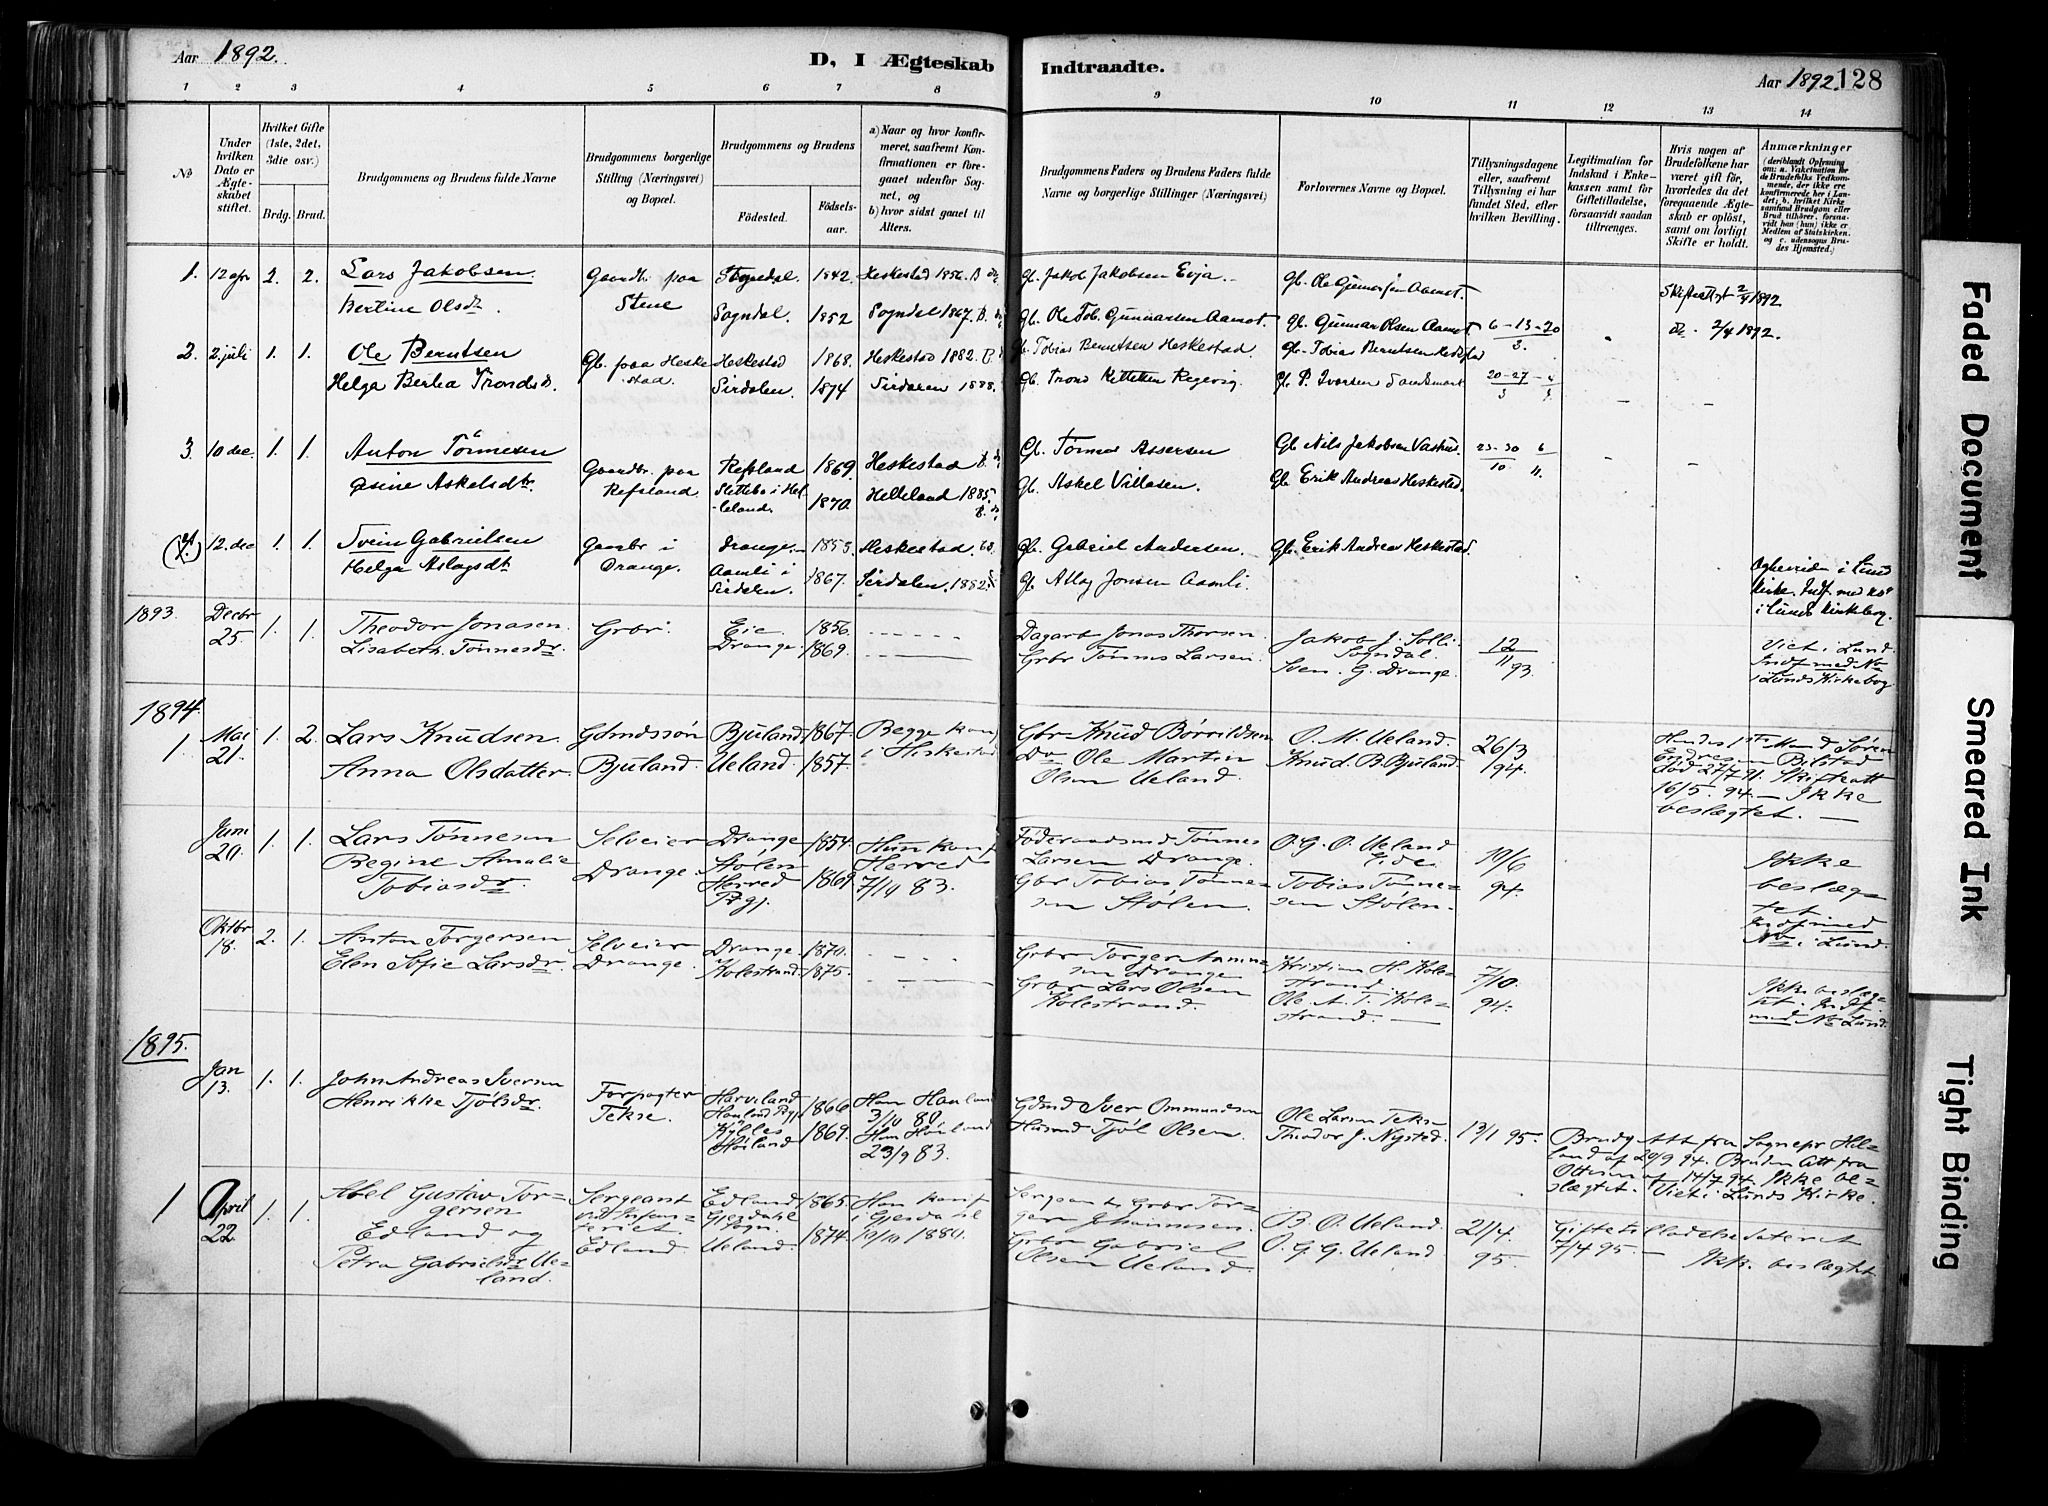 Aar 1892.
D, I Ægteskab Indtraadte.
Aar 1892. 128
1 2 3 4 5 6 7 8 9 10 11 12 13 14
No
Under hvilken Dato er Ægteskabet stiftet.
Hvilket Gifte (1ste, 2det, 3die osv.)
Brdg. Brud.
Brudgommens og Brudens fulde Navne
Brudgommens borgerlige Stilling (Næringsvei) og Bopæl.
Brudgommens og Brudens
Fødested. Fødselsaar.
a) Naar og hvor konfirmeret, saafremt Konfirmationen er foregaaet udenfor Sognet, og
b) hvor sidst gaaet til Alters.
Brudgommens Faders og Brudens Faders fulde Navne og borgerlige Stillinger (Næringsvei)
Forlovernes Navne og Bopæl.
Tillysningsdagene eller, saafremt Tillysning ei har fundet Sted, efter hvilken Bevilling.
Legitimation for Indskud i Enkekassen samt for Giftetilladelse, forsaavidt saadan tiltrænges.
Hvis nogen af Brudefolkene har været gift før, hvorledes da det foregaaende Ægteskab er opløst, samt om lovligt Skifte er holdt.
Anmærkninger (deriblandt Oplysning om: a. Vakcination for de Brudefolks Vedkommende, der ikke ere konfirmerede her i Landet; b. hvilket Kirkesamfund Brudgom eller Brud tilhører, forsaavidt han (hun) ikke er Medlem af Statskirken, og c. udensogns Brudes Hjemsted.
1. 12 apr 2. 2. Lars Jakobsen Gaardb. paa Stene Sogndal. 1842. Heskestad 1856. Gb. Jakob Jakobsen Evja. Gb. Ole Gunnarsen Aamot.
Bertine Olsdtr. Sogndal. 1852 Sogndal 1867. Gb. Ole Tob. Gunnarsen Aamot. Gb. Gunnar Olsen Aamot 6-13-20 3. 2/4 1892.
2. 2 juli 1. 1. Ole Berntsen Gb. paa Heskestad. Heskestad 1868. Heskestad 1882. Gb. Tobias Berntsen Heskestad. Gb. Tobias Berntsen Heskestad
Helga Bertea Trondsd. Sirdalen. 1874 Sirdalen 1888. Gb. Trond Gb. P. Ivarsen Sandsmark
3. 10 dec. 1. 1. Anton Tönnesen Gaardbr. paa Refsland. Refsland 1869. Heskestad Gb. Tønnes Assersen Gb Nils Jakobsen
Gesine Askelsdtr. Slettebø i Helleland. 1870. Helleland 1885. Gb. Askel Villasen. Gb. Erik Andreas Heskestad.
12. dec 1. 1. Svein Gabrielsen Gaarbr i Drange. Drange. 1853. Heskestad. Gb. Gabriel Andersen. Gb. Erik Andreas Heskestad.
Helga Aslagsdtr Aamli i Sirdalen. 1867. Sirdalen. 1882. Gb Aslag Jonsen Aamli
i Lund Kirke. Indf. med No i Lunds Kirkebog.
1893. Decbr 25. 1. 1. Theodor Jonasen. Grbr. Eie 1856. Dagarb Jonas Thorsen. Jakob J. Solli Sogndal. 12/11 93. Viet i Lund.
Lisabeth. Tönnesdr. Drange 1869. Grbr Tønnes Larsen. Sven. G. Drange. Indf med No i Lunds Kirkebog
1894.
1. Mai 21. 1. 2. Lars Knudsen. Gdmdssøn Bjuland 1867. Begge konf i Heskestad Gbr Knud O. M. Ueland. 26/3 94.
Anna Olsdatter. Bjuland. Ueland. 1857. Ole Martin Olsen Ueland. Knud. B. Bjuland.
Hendes 1ste Mand Sören Endresen Bilstad död 27/7 91. Skifteatt 16/5. 94. — Ikke beslægtet. —
Juni 20. 1. 1. Lars Tönnesen Selveier Drange. Drange 1854. Hun konf Herred 7/10 83. Föderaadsmd Tønnes Larsen Drange. O. G. O. Ueland Eide. 10/6 94.
Regine Amalie Tobiasdr. Stølen Herred Prgj. 1869 Gbr Tobias Tønnesen Stølen. Tobias Tønnesen Stolen.
Ikke beslægtet Indf med No i Lund.
Oktbr 18. 2. 1. Anton Torgersen Selveier Drange. Drange 1870. Grbr Torger Drange Kristian H. Kolestrand. 7/10. 94.
Elen Sofie Larsdr. Kolestrand. 1875. Grbr Lars Olsen Kolestrand. Ole A. T. Kolestrand. —
Ikke beslægtet. Indf. med No Lund.
1895.
Jan 13. 1. 1. John Andreas Iversen Forpagter Tekse. 1866 3/10 80. Gdmd Iver Ommundsen Ole Larsen Tekse 13/1 95.
Henrikke Tjölsdr. 1869. 23/9 83. Husmd Tjöl Olsen. Theodor J. Nysted.
Brudg Att fra Sognepr af 20/9 94. Bruden Att fra 14/7 94. Ikke beslægtet. Viet i Lunds Kirke.
1 April 22. 1. 1. Abel Gustav Torgersen Edland og Sergeant ved Infanteriet. Edland Edland Gjesdahl Sogn. 1865. Han konf i Gjesdahl 10/10 1880. Sergeant & Grbr Torger Johannesen. B. O. Ueland. 21/4 95.
Petra Gabrielsdr Ueland. Ueland. 1874. Grbr Gabriel Olsen Ueland. O. G. G. Ueland
Giftetilladelse dateret 7/4 95. — Ikke beslægtet
Faded Document
Smeared Ink
Tight Binding